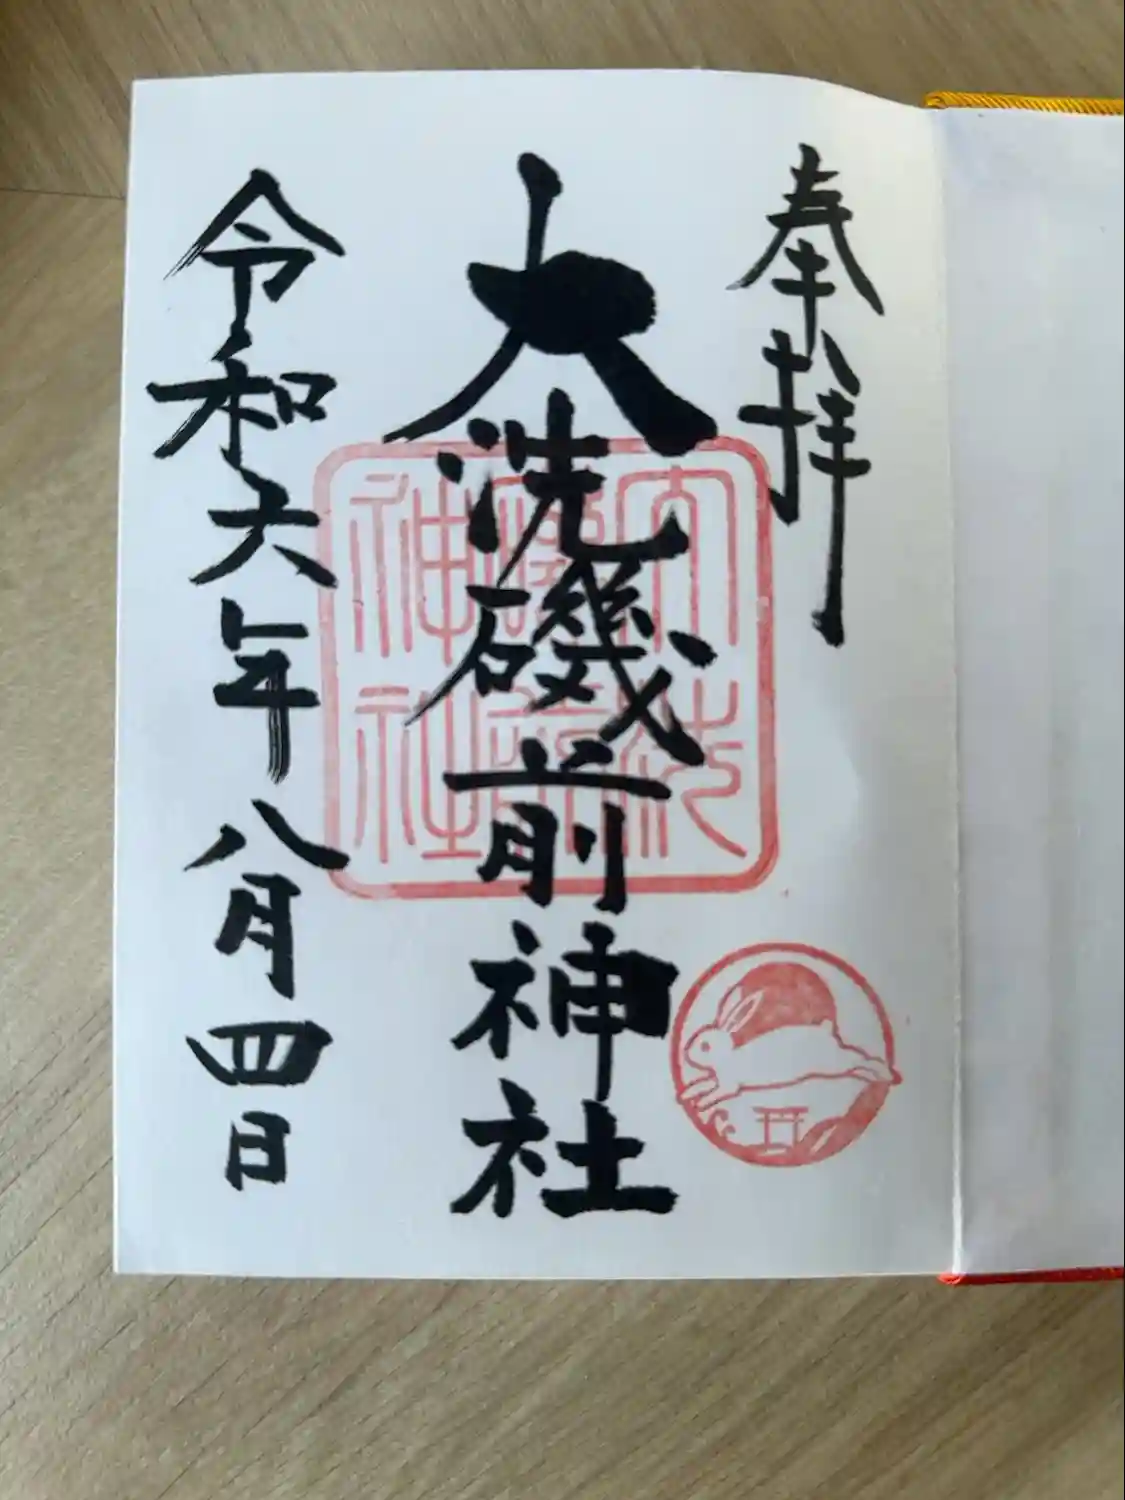 奉拝
大洗磯前神社
令和六年八月四日
大洗
磯前
神社